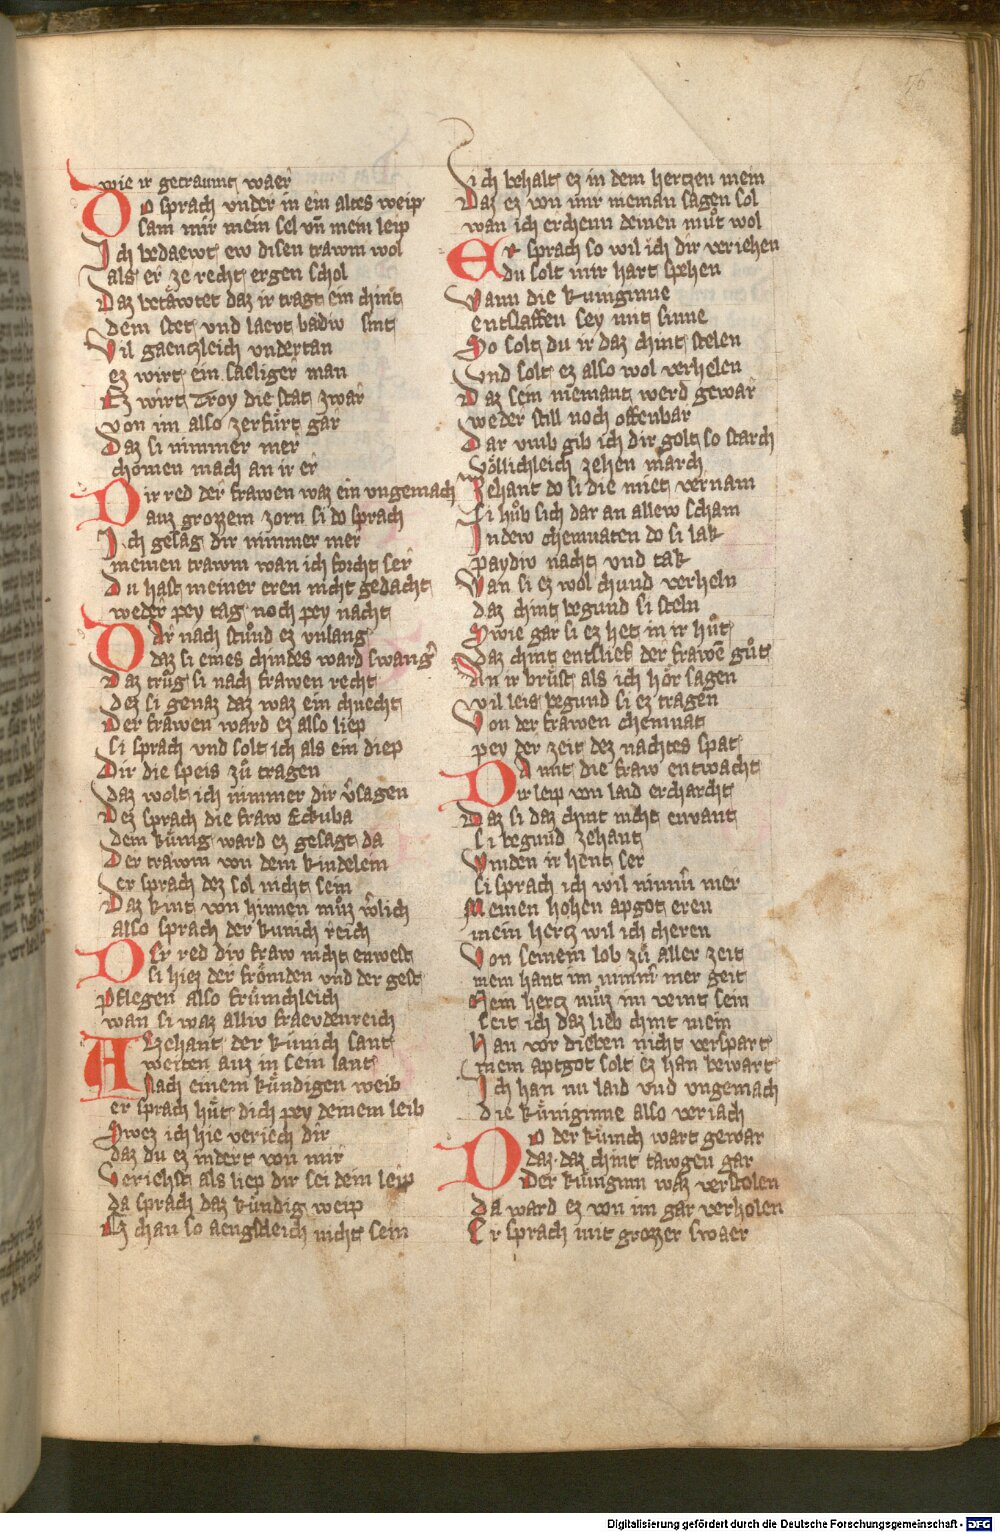 56
wie ir getraumt waer
Do sprach vnder in ein altes weip
sam mir mein sel vn̄ mein leip
Ich bedaewt ew disen trawm wol
als er ze recht ergen schol
Daz betäwtet daz ir tragt ein chint
dem stet vnd laevt badiv sint
Vil gaentzleich vndertan
ez wirt ein saeliger man
Ez wirt Troy die stat zwar
von im also zerfůrt gar
Daz si nimmer mer
chomen mach an ir er
Dir red der frawen waz ein vngemach
auz grozzem zorn si do sprach
Ich gesag dir nimmer mer
meinen trawm wan ich forcht ser
Du hast meiner eren nicht gedacht
weder pey tag noch pey nacht
Dar nach stůnd ez vnlang
daz si eines chindes ward swang̃
Daz trůg si nach frawen recht
dez si genaz daz waz ein chnecht
Der frawen ward ez also liep
si sprach vnd solt ich als ein diep
Dir die speis zů tragen
daz wolt ich nimmer dir v̾sagen
Dez sprach die fraw Eckuba
dem kůnig ward ez gesagt da
Der trawm von dem kindelein
er sprach dez sol nicht sein
Daz kint von hinnen můz
also sprach der kunich reich
Der red div fraw nicht enwest
si hiez der frömden vnd der gest
Pflegen also frümchleich
wan si waz alliv fraevdenreich
Alzehant der kunich sant
weiten auz in sein lant
Nach einem kündigen weib
er sprach hůt dich pey deinem leib
Swez ich hie veriech dir
daz du ez indert von mir
Verichst als liep dir sei dein leip
da sprach daz kündig weip
Ez chan so aengstleich nicht sein
ich behalt ez in dem hertzen mein
Daz ez von mir nieman sagen sol
wan ich erchenn deinen můt wol
Er sprach so wil ich dir veriehen
du solt mir hart spehen
Wann die kuniginne
entslaffen sey mit sinne
So solt du ir daz chint stelen
vnd solt ez also wol verhelen
Daz sein niemant werd gewar
weder still noch offenbar
Dar vmb gib ich dir golt so starch
völlichleich zehen march
Zehant do si die miet vernam
si hůb sich dar an allew scham
In dew chemnaten do si lak
paydiv nacht vnd tak
Wan si ez wol chund verheln
daz chint begund si steln
Swie gar si ez het in ir hůt
daz chint entslief der frawē gůt
An ir brüst als ich hör sagen
vil leis begund si ez tragen
Von der frawen chemnat
pey der zeit dez nachtes spat
Da mit die fraw entwacht
ir leip von laid erchracht
Daz si daz chint nicht envant
si begund zehant
Winden ir hent ser
si sprach ich wil nimm̄ mer
Meinen hohen apgot eren
mein hertz wil ich cheren
Von seinem lob zů aller zeit
mein hant im nimm̄ mer geit
Mein hertz můz im veint sein
seit ich daz lieb chint mein
Han vor dieben nicht verspart
mein aptgot solt ez han bewart
Ich han nu laid vnd vngemach
die küniginne also veriach
Do der künich wart gewar
daz daz chint tawgen gar
Der künginn waz verstolen
da ward ez von im gar verholen
Er sprach mit grozzer swaer
Digitalisierung gefördert durch die Deutsche Forschungsgemeinschaft - DFG